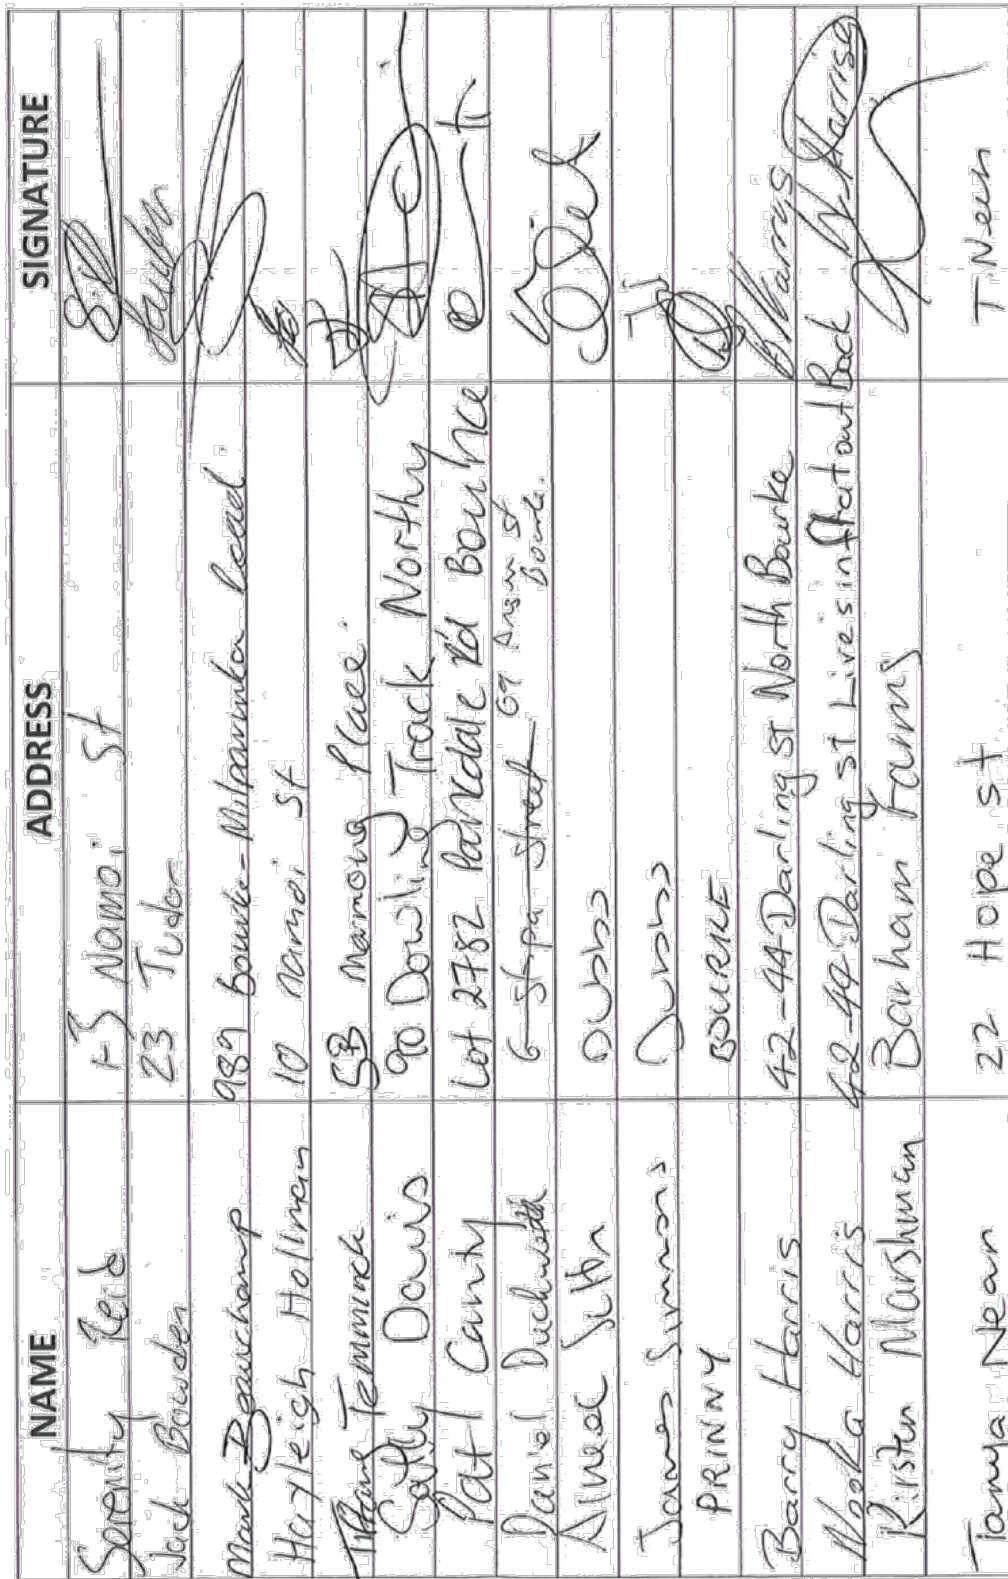 NAME ADDRESS SIGNATURE
Serenity Reid 1-3 Namoi St
Jack Bowden 23 Tudor
Mark Beauchamp 989 Bourke-Milparinka Road
Hayleigh Hollman 10 namoi St
Tiffany Temmink 53 mamong Place
Sally Davis 90 Dowling Track Northy
Pat Canty Lot 2782 Pandale Rd Bourke
Daniel Duchatel 6 Stpa street 69 Anson St
Bourke.
Aimee Sutton Dubbo
James Simmons Dubbo JS
PRINNY BOURKE
Barry Harris 42-44 Darling St North Bourke B Harris
Neola Harris 42-44 Darling St Lives in flat out Back N Harris
Kirsten Marshman Barham Farms
Tanya Nean 22 Hope St T Neen